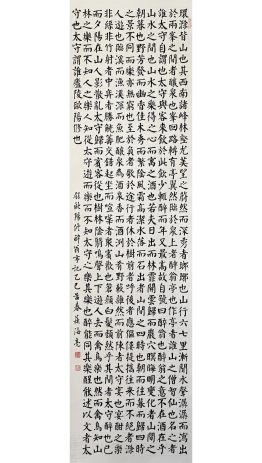 環滁皆山也其西南諸峰林壑尤美望之蔚然而深秀者瑯琊也山行六七里漸聞水聲潺潺而瀉出
於兩峰之間者釀泉也峰回路轉有亭翼然臨於泉上者醉翁亭也作亭者誰山之僧智仙也名之者
誰太守自謂也太守與客來飲於此飲少輒醉而年又最高故自號曰醉翁也醉翁之意不在酒在乎
山水之間也山水之樂得之心而寓之酒也若夫日出而林霏開雲歸而巖穴暝晦明變化者山間之
朝暮也野芳發而幽香佳木秀而繁陰風霜高潔水落而石出者山間之四時也朝而往暮而歸四時
之景不同而樂亦無窮也至於負者歌於途行者休於樹前者呼後者應傴僂提攜往來而不絕者滁
人遊也臨溪而漁溪深而魚肥釀泉為酒泉香而酒洌山肴野蔌雜然而前陳者太守宴也宴酣之樂
非絲非竹射者中弈者勝觥籌交錯起坐而喧嘩者眾賓歡也蒼顏白髮頹然乎其間者太守醉也已
而夕陽在山人影散亂太守歸而賓客從也樹林陰翳鳴聲上下遊人去而禽鳥樂也然而禽鳥知山
林之樂而不知人之樂人知從太守遊而樂而不知太守之樂其樂也醉能同其樂醒能述以文者太
守也太守謂誰廬陵歐陽修也
錄歐陽修醉翁亭記乙巳